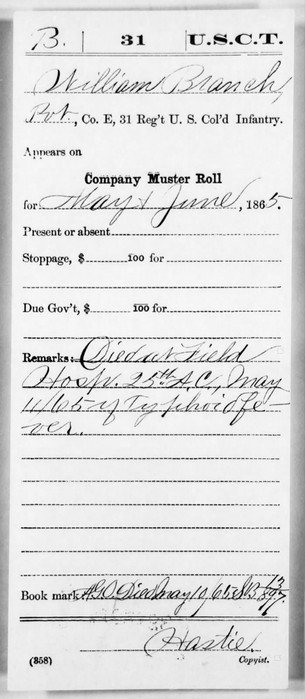 B. 31 U.S.C.T.
William Branch,
Pvt., Co. E, 31 Reg't U. S. Col'd Infantry.
Appears on
Company Muster Roll
for May & June, 1865.
Present or absent
Stoppage, $ 100 for
Due Gov't, $ 100 for
Remarks: Died at Field
Hosp. 25th A.C., May
11/65 of Typhoid fe-
ver.
Book mark: Died May 10/65
Hastie.
(358) Copyist.